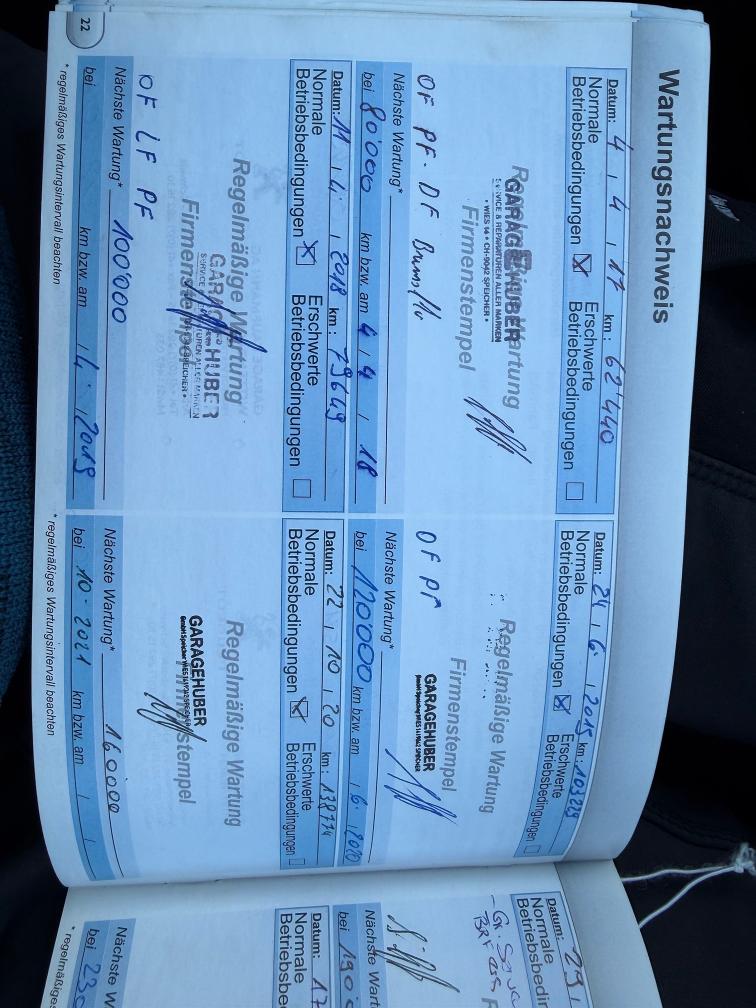 Wartungsnachweis
Datum: 4 / 4 / 17 km: 62'440
Normale Betriebsbedingungen ☒ Erschwerte Betriebsbedingungen ☐
Regelmäßige Wartung
Firmenstempel
GARAGE HUBER
SERVICE & REPARATUREN ALLER MARKEN
• WIES 14 • CH-9042 SPEICHER •
OF PF. DF
Nächste Wartung*
bei 80'000 km bzw. am 4 / 4 / 18
Datum: 11 / 4 / 2018 km: 79649
Normale Betriebsbedingungen ☒ Erschwerte Betriebsbedingungen ☐
Regelmäßige Wartung
Firmenstempel
GARAGE HUBER
OF LF PF
Nächste Wartung* 100'000
bei km bzw. am / 4 / 2019
* regelmäßiges Wartungsintervall beachten
22
Datum: 24 / 6 / 2019 km: 103229
Normale Betriebsbedingungen ☒ Erschwerte Betriebsbedingungen ☐
Regelmäßige Wartung
Firmenstempel
GARAGEHUBER
OF PF
Nächste Wartung*
bei 120000 km bzw. am / 6 / 2020
Datum: 22 / 10 / 20 km: 138774
Normale Betriebsbedingungen ☒ Erschwerte Betriebsbedingungen ☐
Regelmäßige Wartung
Firmenstempel
GARAGEHUBER
Nächste Wartung* 160000
bei 10. 2021 km bzw. am / /
* regelmäßiges Wartungsintervall beachten
Datum: 29
Normale
Betriebsbedin
Nächste Wart
bei 190
Datum: 17
Normale
Betriebsbe
Nächste W
bei 230
* regelmäßiges